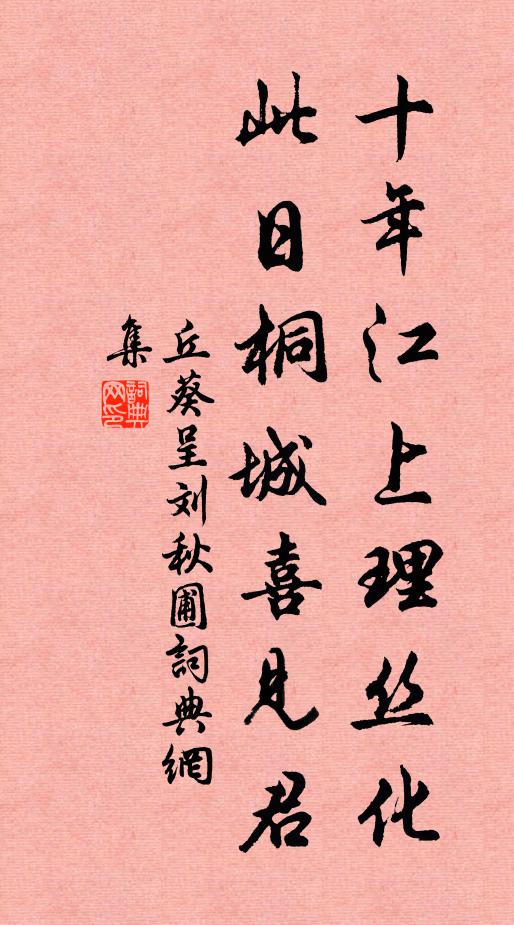 十年江上理丝化
此日桐城喜见君
丘葵呈刘秋圃詞典網
集
詞典網印